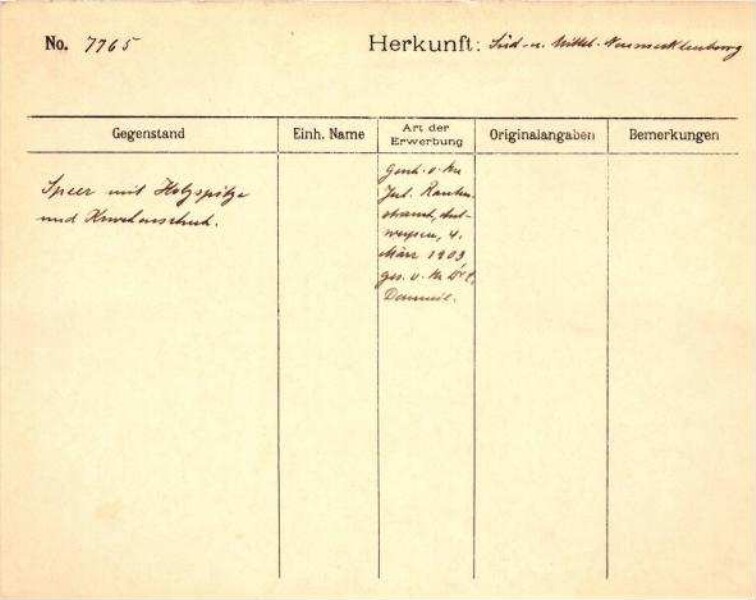 No. 7765 Herkunft: Süd-u. Mittel-Neumecklenburg
Gegenstand Einh. Name Art der Erwerbung Originalangaben Bemerkungen
Speer mit Holzspitze
und Knochenschuh.
Gesch. v. Hn
Jul. Rauten-
strauch, Ant-
werpen, 4.
März 1903
ges. v. Hn